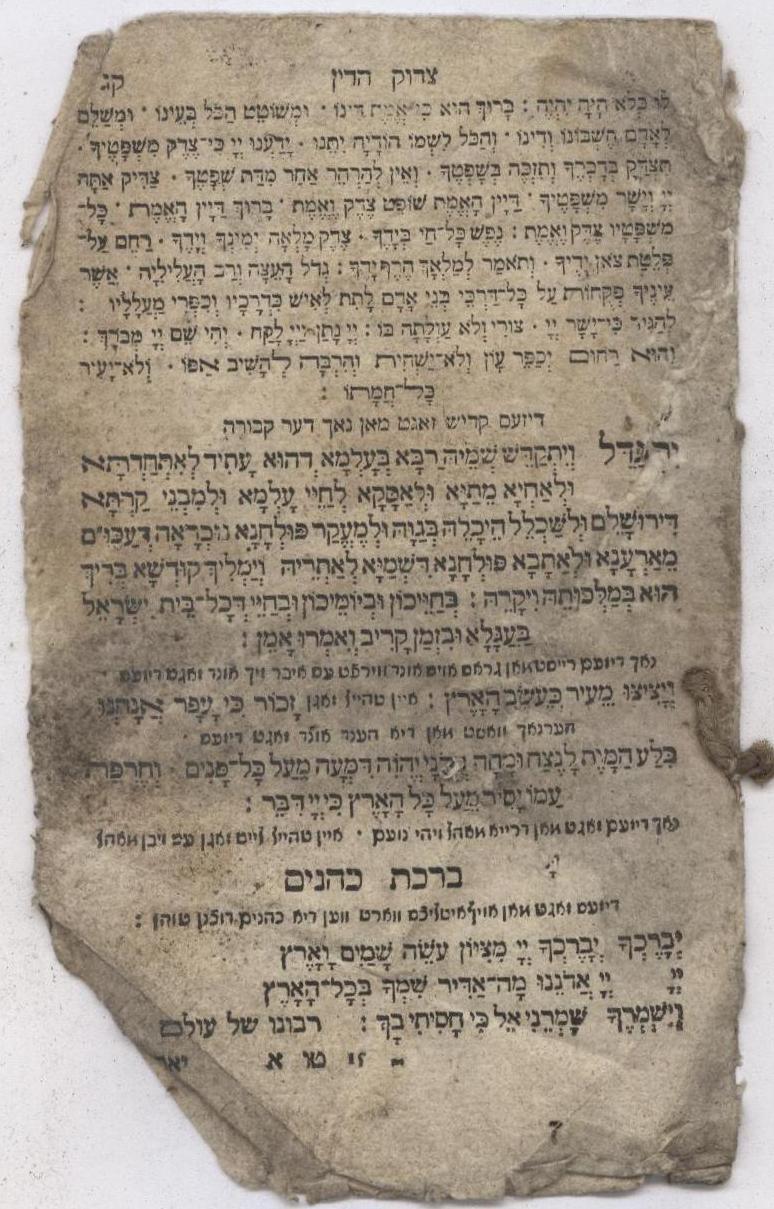 צדוק הדין קג
לו כלא היה יהיה : ברוך הוא כי אמת דינו · ומשוטט הכל בעינו · ומשלם
לאדם חשבונו ודינו · והכל לשמו הודיה יתנו · ידענו יי כי־צדק משפטיך ·
תצדק בדברך ותזכה בשפטך · ואין להרהר אחר מדת שפטך · צדיק אתה
יי וישר משפטיך · דיין האמת שופט צדק ואמת · ברוך דיין האמת · כל־
משפטיו צדק ואמת : נפש כל־חי בידך · צדק מלאה ימינך וידך · רחם על־
פלטת צאן ידיך · ותאמר למלאך הרף ידך : גדל העצה ורב העליליה · אשר
עיניך פקחות על כל־דרכי בני אדם לתת לאיש כדרכיו וכפרי מעלליו :
להגיד כי־ישר יי · צורי ולא עולתה בו : יי נתן ויי לקח · יהי שם יי מברך :
והוא רחום יכפר עון ולא־ישחית והרבה להשיב אפו · ולא־יעיר
כל־חמתו :
דיזעם קדיש זאגט מאן נאך דער קבורה
יתגדל ויתקדש שמיה רבא בעלמא דהוא עתיד לאתחדתא
ולאחיא מתיא ולאסקא לחיי עלמא ולמבני קרתא
דירושלם ולשכלל היכלה בגוה ולמעקר פולחנא נוכראה דעכו״ם
מארענא ולאתבא פולחנא דשמיא לאתריה וימליך קודשא בריך
הוא במלכותה ויקרה : בחייכון וביומיכון ובחיי דכל־בית ישראל
בעגלא ובזמן קריב ואמרו אמן :
נאך דיזעם רייסט מאן גראס אויס אונד ווירפט עס איבר זיך אונד זאגט דיזעס
ויציצו מעיר כעשב הארץ : איין טהייל זאגן זכור כי עפר אנחנו
הערנאך וואשט מאן דיא הענד אונד זאגט דיזעס ·
בלע המות לנצח ומחה אדני יהוה דמעה מעל כל־פנים · וחרפת
עמו יסיר מעל כל הארץ כי יי דבר :
נאך דיזעם זאגט מאן דרייא מאהל ויהי נועם · איין טהייל זאגן עס זיבן מאהל
ברכת כהנים
דיזעם זאגט מאן ווען דיא כהנים דוכנן טוהן :
יברכך יברכך יי מציון עשה שמים וארץ
יי יי אדננו מה־אדיר שמך בכל־הארץ
וישמרך שמרני אל כי חסיתי בך : רבונו של עולם